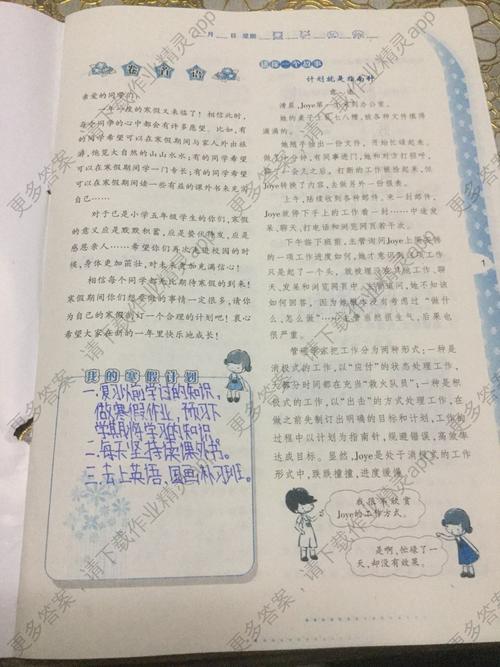 月 日 星期
卷首语
亲爱的同学们：
一年一度的寒假又来临了！相信此时，
每个同学的心中都会有许多愿望。比如，有
的同学希望可以在寒假期间与家人外出旅
游，饱览大自然的山山水水；有的同学希望
可以在寒假期间学习一门专长；有的同学希望
可以在寒假期间阅读一些有益的课外书来充实
自己……
对于已是小学五年级学生的你们，寒假
的意义应是默默积蓄，应是蛰伏待发，应是
感恩亲人……希望你们再次走进校园的时
候，身体更加茁壮，对未来更加充满信心！
相信每个同学都无比期待寒假的到来！
寒假期间你们想要做的事情一定很多，请你
为自己的寒假制订一个合理的计划吧！衷心
希望大家在新的一年里快乐地成长！
我的寒假计划
一、复习以前学习的知识，
做寒假作业，预习下
学期将学习的知识
二、每天坚持读课外书。
三、去上英语，国画补习班。
读读一个故事
计划就是指南针
清晨，Joye第一个来到办公室。
她的桌子上乱七八糟，被各种文件摆得
满满的。
她随手抽出一份文件，开始忙碌起来。
做了十分钟，有同事进门，她和对方打招呼，
聊了一会儿之后，打断的工作被捡起来，但
Joye转换了内容，去做另外一份报表。
上午，陆续收到各种邮件，来一封邮件，
Joye就停下手上的工作看一封……中途发
呆，聊天，打电话和浏览网页若干次。
下午临下班前，主管询问Joye上周安排
的一项工作进度如何，她才意识到这项工作
只是起了一个头，就被埋没在其他工作、聊
天、发呆和浏览网页中。主管追问，她不知该
如何回答，因为她根本没有考虑过“做什
么，怎么做”……主管当然很生气，后果也
很严重。
管理学家把工作分为两种形式：一种是
消极式的工作，以“应付”的状态处理工作，
大部分时间都在充当“救火队员”；一种是积
极式的工作，以“出击”的方式处理工作，在
做之前先制订出明确的目标和计划，工作的
过程中以计划为指南针，规避错误，高效率
达成目标。显然，Joye是处于消极式的工作
形式中，跌跌撞撞，进度缓慢。
我很不欣赏
Joye的工作方式。
是啊，忙碌了一
天，却没有效果。
1
更多答案，请下载作业精灵app